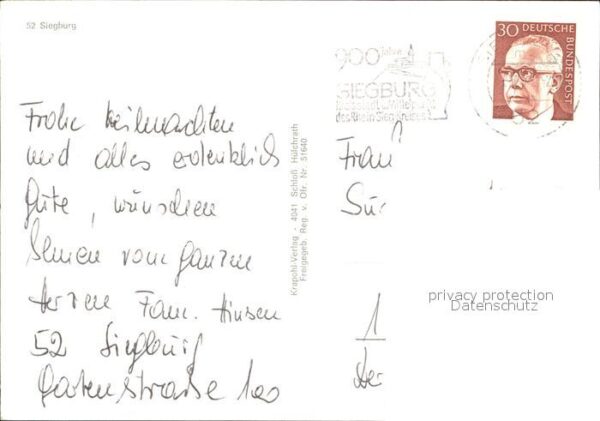 52 Siegburg
Frohe Weihnachten
und alles erdenklich
Gute, wünschen
Ihnen vom ganzen
Herzen Fam. Hinsen
52 Siegburg
Gartenstraße 100
Krapohl-Verlag - 4041 Schloß Hülchrath
Freigegeb. Reg. v. Ofr. Nr. 51640
900 Jahre
SIEGBURG
Kreisstadt u. Mittelpunkt
des Rhein-Sieg-Kreises
30 DEUTSCHE
BUNDESPOST
Frau
1
privacy protection
Datenschutz